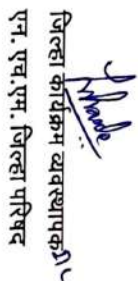 जिल्हा कार्यक्रम व्यवस्थापक
एन. एच. एम. जिल्हा परिषद